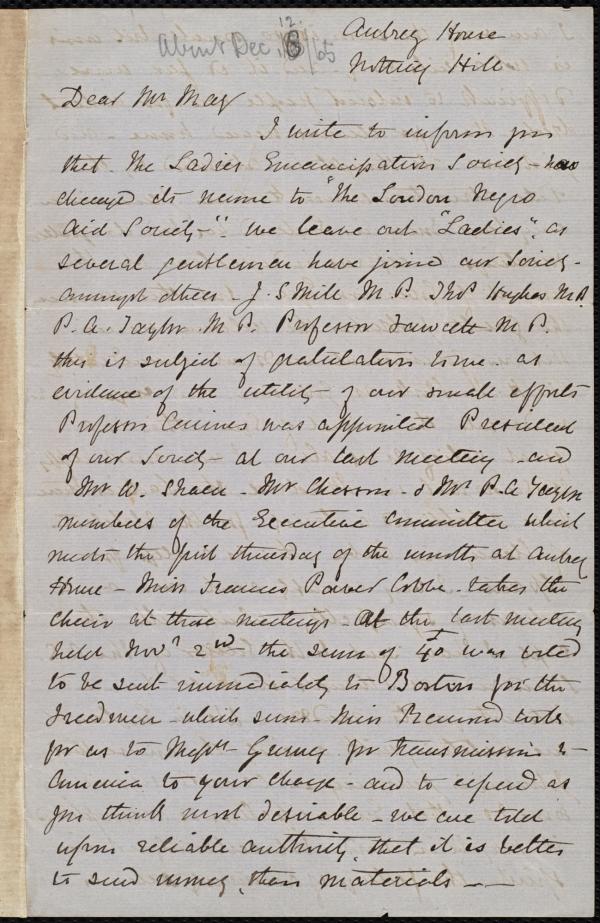 About Dec 12 /65
Aubrey House
Notting Hill
Dear Mr May
I write to inform you
that The Ladies Emancipation Society - has
changed its name to "The London Negro
Aid Society -" we leave out "Ladies", as
several gentlemen have joined our Society -
amongst others - J. S Mill M P. Thos Hughes M.P.
P. A. Taylor M P. Professor Fawcett M P.
this is subject of gratulation to me - as
evidence of the utility of our small efforts
Professor Cairnes was appointed President
of our Society - at our last meeting - and
Mr W. Shaen - Mr Chesson - & Mr P. A Taylor
members of the Executive Committee which
meets the first thursday of the month at Aubrey
House - Miss Frances Power Cobbe - takes the
chair at these meetings - At the last meeting
held Novr 2nd - the sum of £40 was voted
to be sent immediately to Boston for the
Freedmen - which sum - Miss Remond took
for us to Messrs Gurney for transmission to
America to your charge - and to expend as
you think most desirable - we are told
upon reliable authority, that it is better
to send money, than materials -